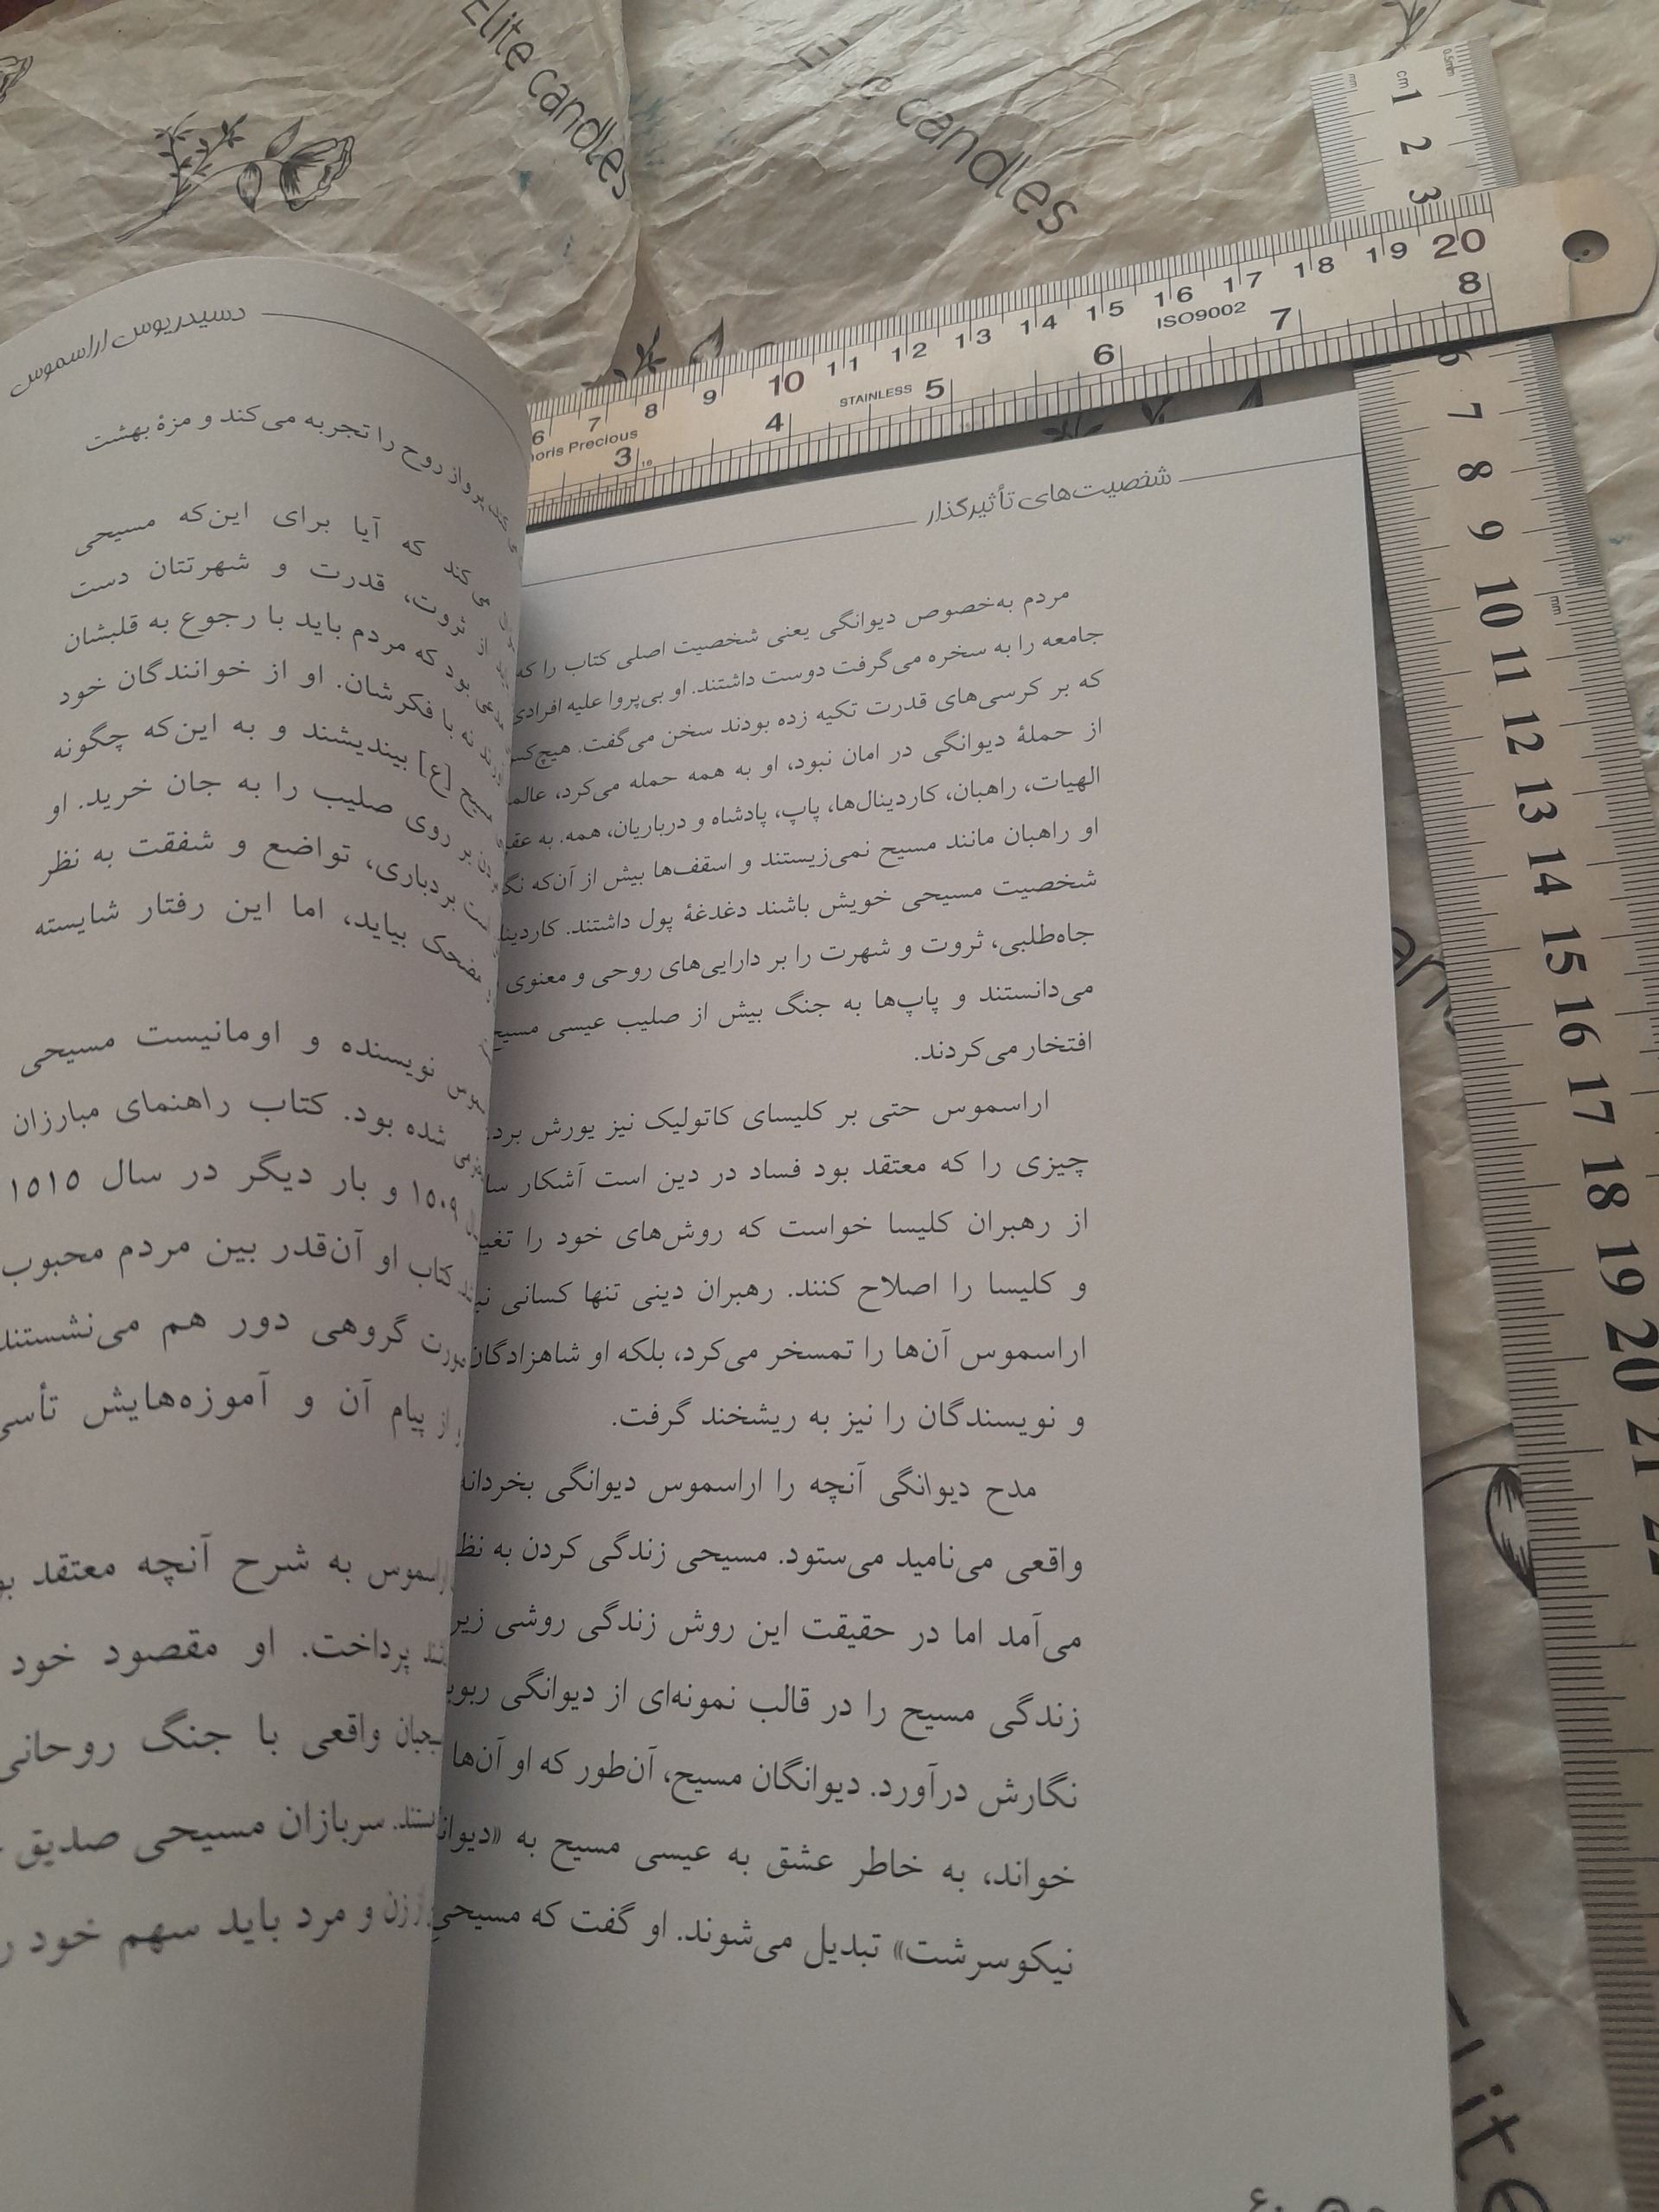 Elite candles
candles
cm 1 2 3
0.5mm
mm
6 7 8 9 10 11 12 13 14 15 16 17 18 19 20
STAINLESS
ISO9002
Precious
3 4 5 6 7 8
6 7 8 9 10 11 12 13 14 15 16 17 18 19 20 21 22
mm
شخصیت‌های تأثیرگذار
مردم به‌خصوص دیوانگی یعنی شخصیت اصلی کتاب را که
جامعه را به سخره می‌گرفت دوست داشتند. او بی‌پروا علیه افرادی
که بر کرسی‌های قدرت تکیه زده بودند سخن می‌گفت.
از حملهٔ دیوانگی در امان نبود، او به همه حمله می‌کرد،
الهیات، راهبان، کاردینال‌ها، پاپ، پادشاه و درباریان، همه. به
او راهبان مانند مسیح نمی‌زیستند و اسقف‌ها بیش از آن‌که
شخصیت مسیحی خویش باشند دغدغهٔ پول داشتند.
جاه‌طلبی، ثروت و شهرت را بر دارایی‌های روحی و معنوی
می‌دانستند و پاپ‌ها به جنگ بیش از صلیب عیسی مسیح
افتخار می‌کردند.
اراسموس حتی بر کلیسای کاتولیک نیز یورش برد.
چیزی را که معتقد بود فساد در دین است آشکار
از رهبران کلیسا خواست که روش‌های خود را
و کلیسا را اصلاح کنند. رهبران دینی تنها کسانی
اراسموس آن‌ها را تمسخر می‌کرد، بلکه او شاهزادگان
و نویسندگان را نیز به ریشخند گرفت.
مدح دیوانگی آنچه را اراسموس دیوانگی بخردانه
واقعی می‌نامید می‌ستود. مسیحی زندگی کردن به
می‌آمد اما در حقیقت این روش زندگی روشی
زندگی مسیح را در قالب نمونه‌ای از دیوانگی
نگارش درآورد. دیوانگان مسیح، آن‌طور که او آن‌ها
خواند، به خاطر عشق به عیسی مسیح به
نیکوسرشت» تبدیل می‌شوند. او گفت که مسیحی
دسیدریوس اراسموس
پرواز روح را تجربه می‌کند و مزهٔ بهشت
می‌کند که آیا برای این‌که مسیحی
از ثروت، قدرت و شهرتتان دست
بود که مردم باید با رجوع به قلبشان
نه با فکرشان. او از خوانندگان خود
مسیح [ع] بیندیشند و به این‌که چگونه
بر روی صلیب را به جان خرید. او
بردباری، تواضع و شفقت به نظر
مضحک بیاید، اما این رفتار شایسته
نویسنده و اومانیست مسیحی
شده بود. کتاب راهنمای مبارزان
۱۵۰۹ و بار دیگر در سال ۱۵۱۵
کتاب او آن‌قدر بین مردم محبوب
گروهی دور هم می‌نشستند
از پیام آن و آموزه‌هایش تأسی
اراسموس به شرح آنچه معتقد
پرداخت. او مقصود خود
واقعی با جنگ روحانی
سربازان مسیحی صدیق
زن و مرد باید سهم خود
Elite